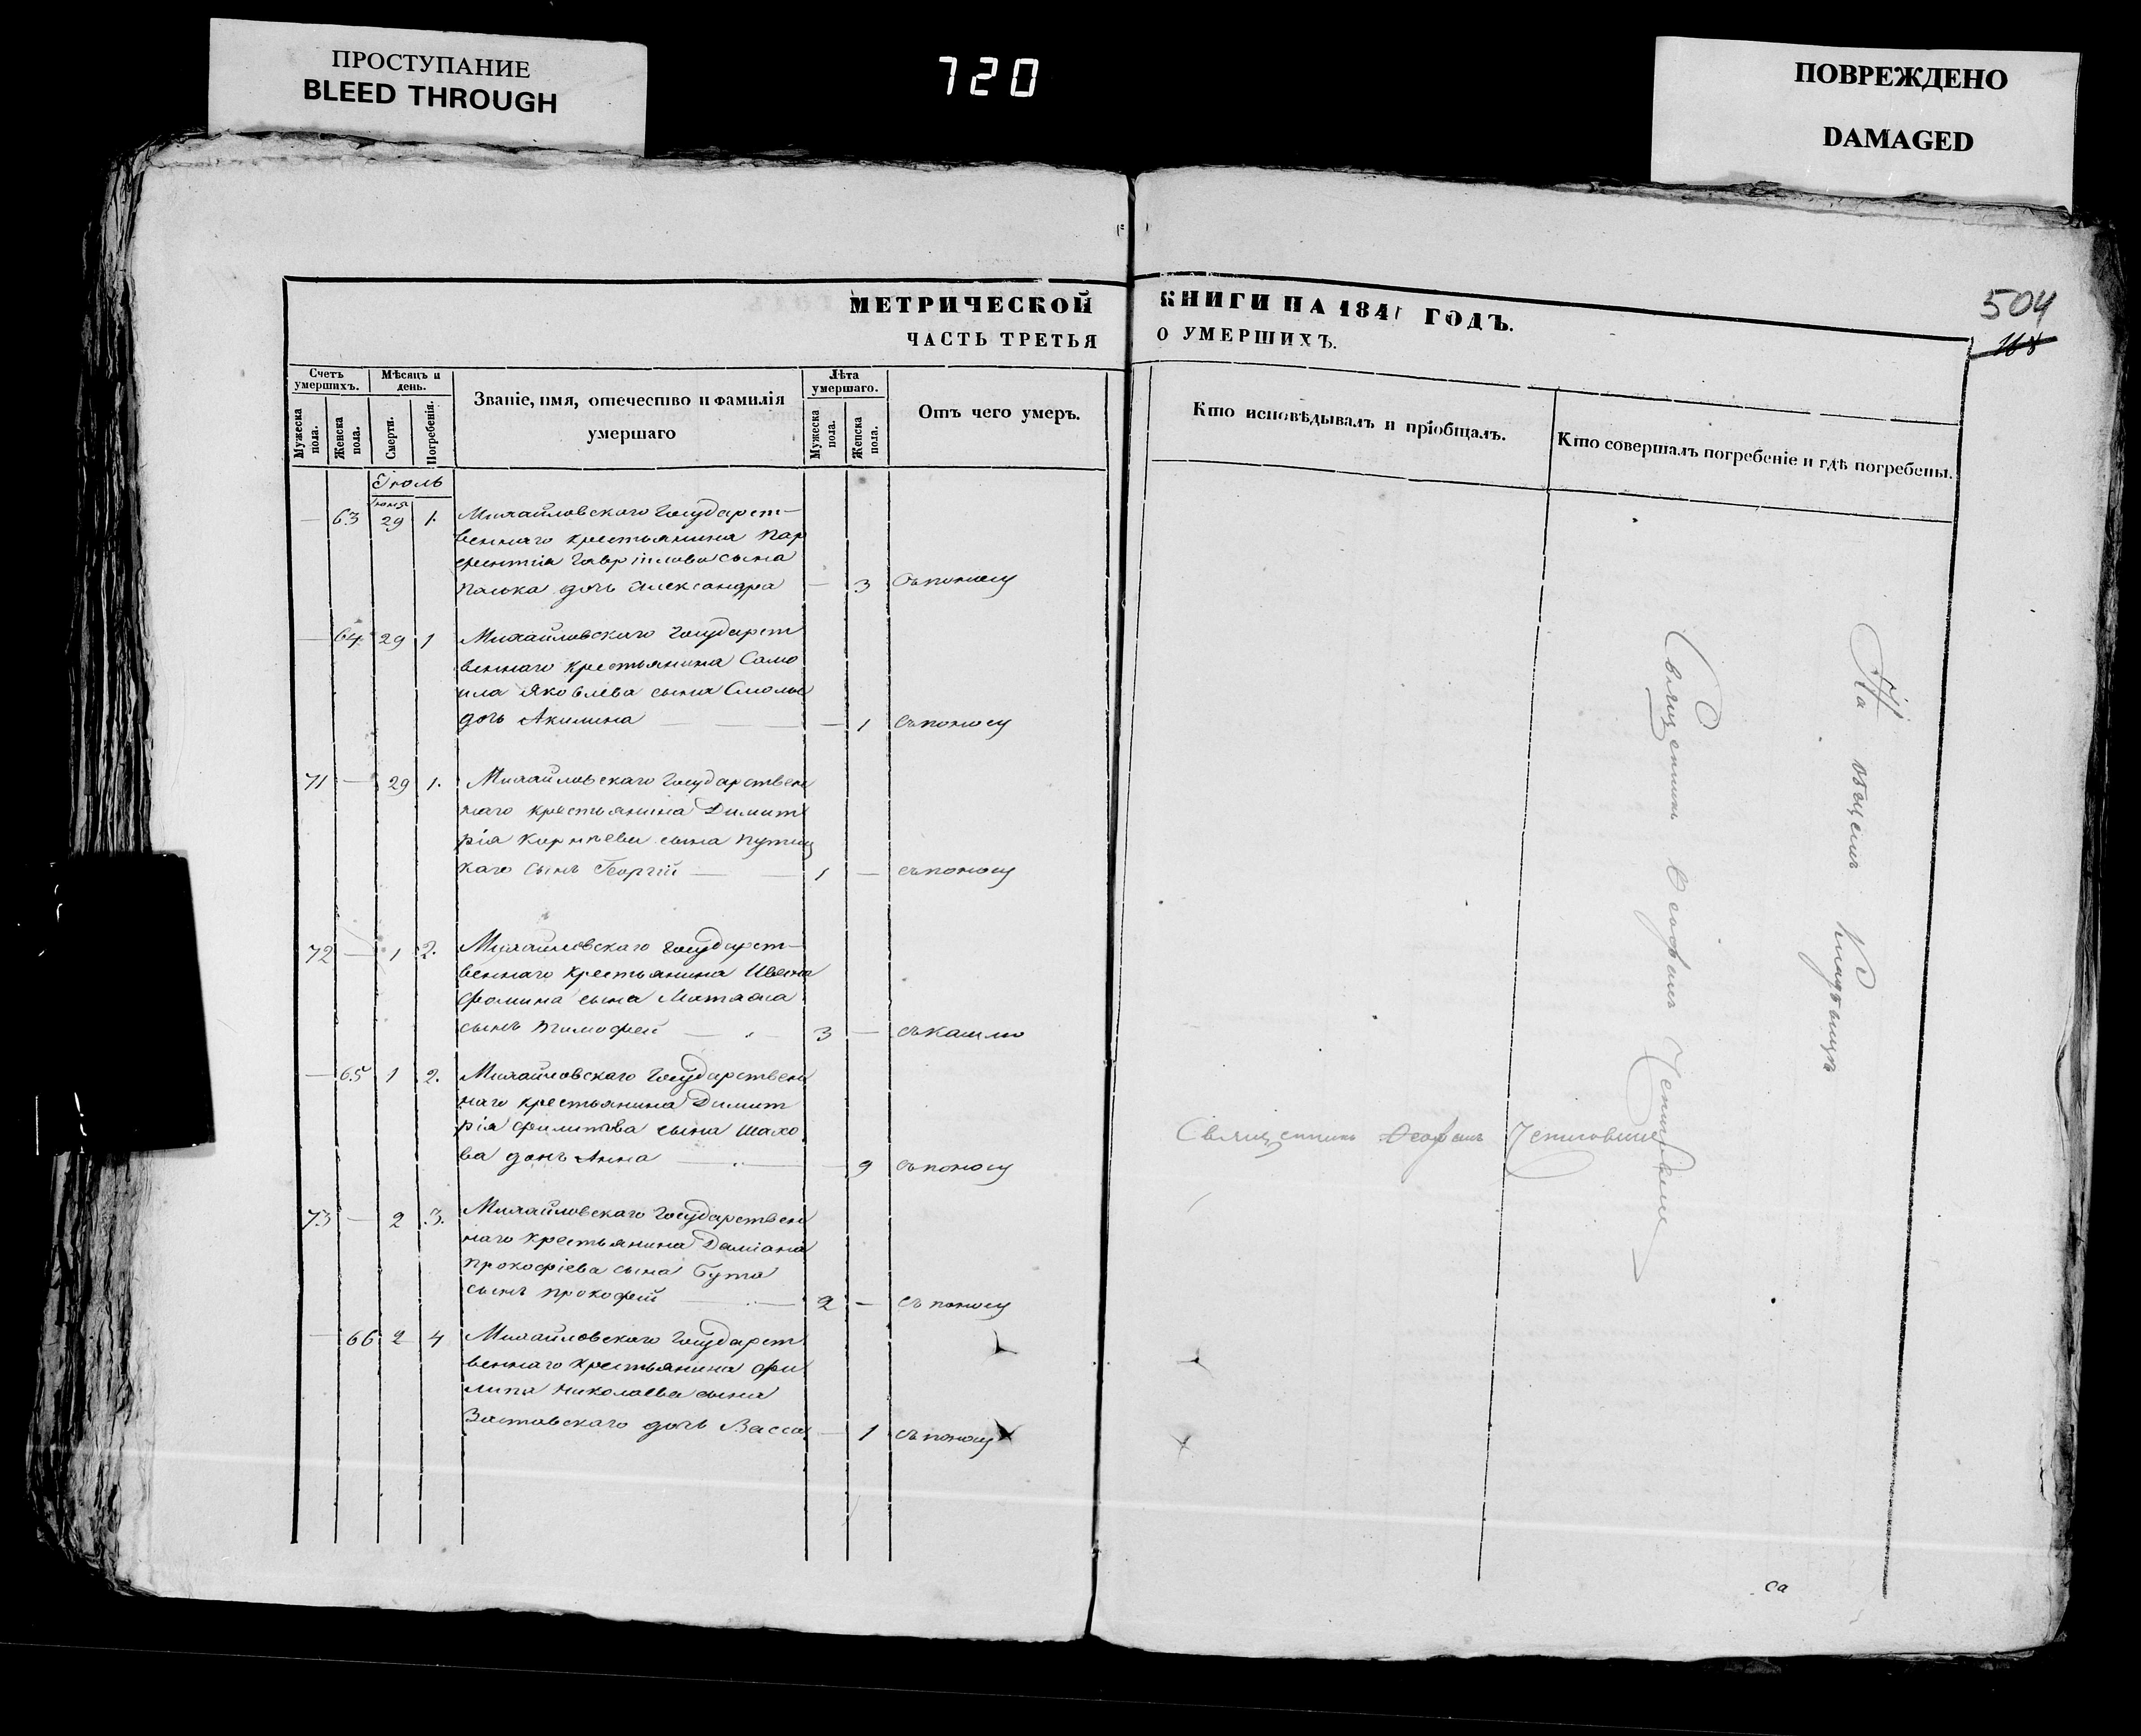 ПРОСТУПАНИЕ
BLEED THROUGH
720
ПОВРЕЖДЕНО
DAMAGED
МЕТРИЧЕСКОЙ КНИГИ НА 1841 ГОДЪ.
ЧАСТЬ ТРЕТЬЯ О УМЕРШИХЪ.
504
168
Счетъ умершихъ.
Мужеска пола.
Женска пола.
Мѣсяцъ и день.
Смерти.
Погребенія.
Званіе, имя, отечество и фамилія
умершаго
Лѣта умершаго.
Мужеска пола.
Женска пола.
Отъ чего умеръ.
Кто исповѣдывалъ и пріобщалъ.
Кто совершалъ погребеніе и гдѣ погребены.
Іюль
Іюня
— 63 29 1. Михайловскаго Государст-
веннаго крестьянина Пар
фентія Гавріилова сына
дочь Александра — 3 Съ поносу
— 64 29 1 Михайловскаго Государст
веннаго крестьянина Само
ила Яковлева сына
дочь Акилина — — 1 съ поносу
71 — 29 1. Михайловскаго Государствен
наго крестьянина Димит
рія Корнѣева сына
каго сынъ Георгій — 1 — съ поносу
72 — 1 2. Михайловскаго Государст-
веннаго крестьянина Ивана
Фомина сына
сынъ Тимофей — 3 — съ кашлю
— 65 1 2. Михайловскаго Государствен
наго крестьянина Димит
рія Филипова сына Шахо
ва дочь Анна — 9 съ поносу
73 — 2 3. Михайловскаго Государствен
наго крестьянина Даміана
Прокофіева сына Бута
сынъ Прокофій — 2 — съ поносу
— 66 2 4 Михайловскаго Государст
веннаго крестьянина Фи
липа Николаева сына
Зостовскаго дочь Васса — 1 съ поносу
Священникъ Өеофилъ
Священникъ Өеофилъ
На общемъ Кладбищѣ
са